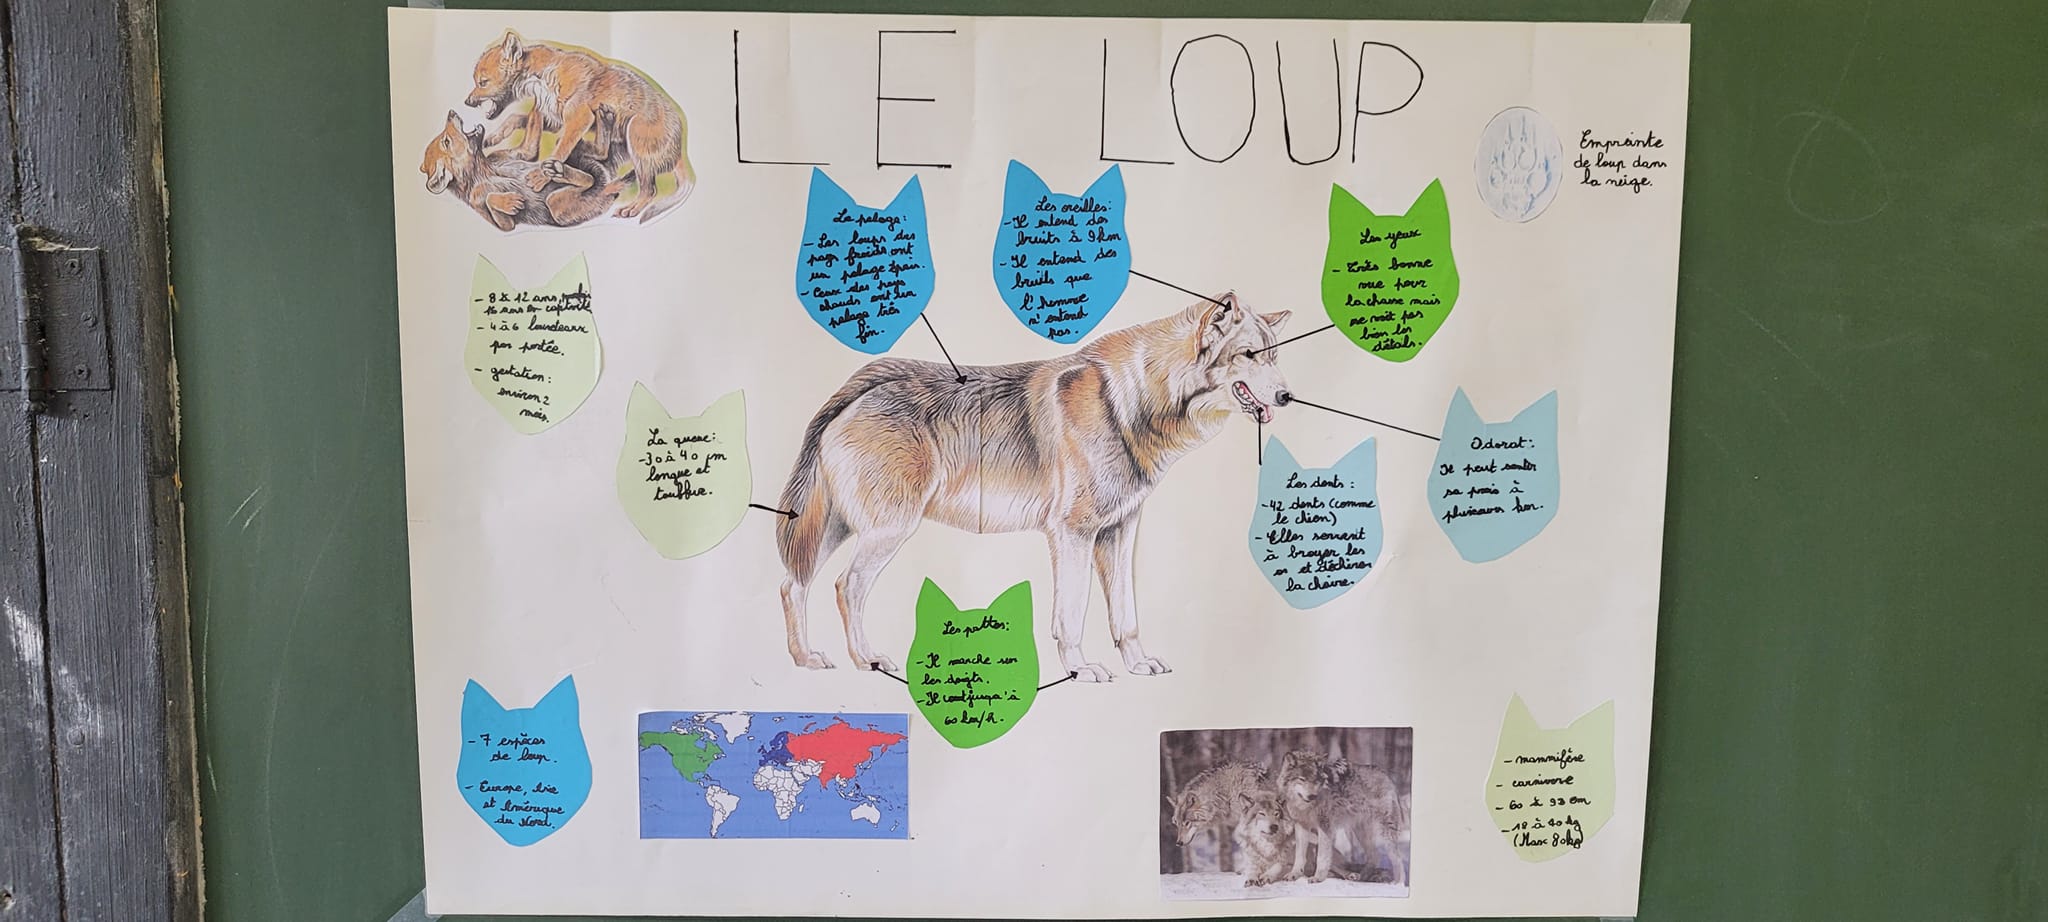 LE LOUP
Empreinte
de loup dans
la neige.
Le pelage :
- Les loups des
pays froids ont
un pelage épais.
- Ceux des pays
chauds ont un
pelage très
fin.
Les oreilles :
- Il entend des
bruits à 9 km
- Il entend des
bruits que
l'homme
n'entend
pas.
Les yeux
- Très bonne
vue pour
la chasse mais
ne voit pas
bien les
détails.
- 8 à 12 ans,
16 ans en captivité
- 4 à 6 louveteaux
par portée.
- gestation :
environ 2
mois.
La queue :
- 30 à 40 cm
longue et
touffue.
Odorat :
Il peut sentir
sa proie à
plusieurs km.
Les dents :
- 42 dents (comme
le chien)
- Elles servent
à broyer les
os et déchirer
la chaire.
Les pattes :
- Il marche sur
les doigts.
- Il court jusqu'à
60 km/h.
- 7 espèces
de loup.
- Europe, Asie
et Amérique
du Nord.
- mammifère
- carnivore
- 60 à 90 cm
- 18 à 40 kg
(Max 80kg)